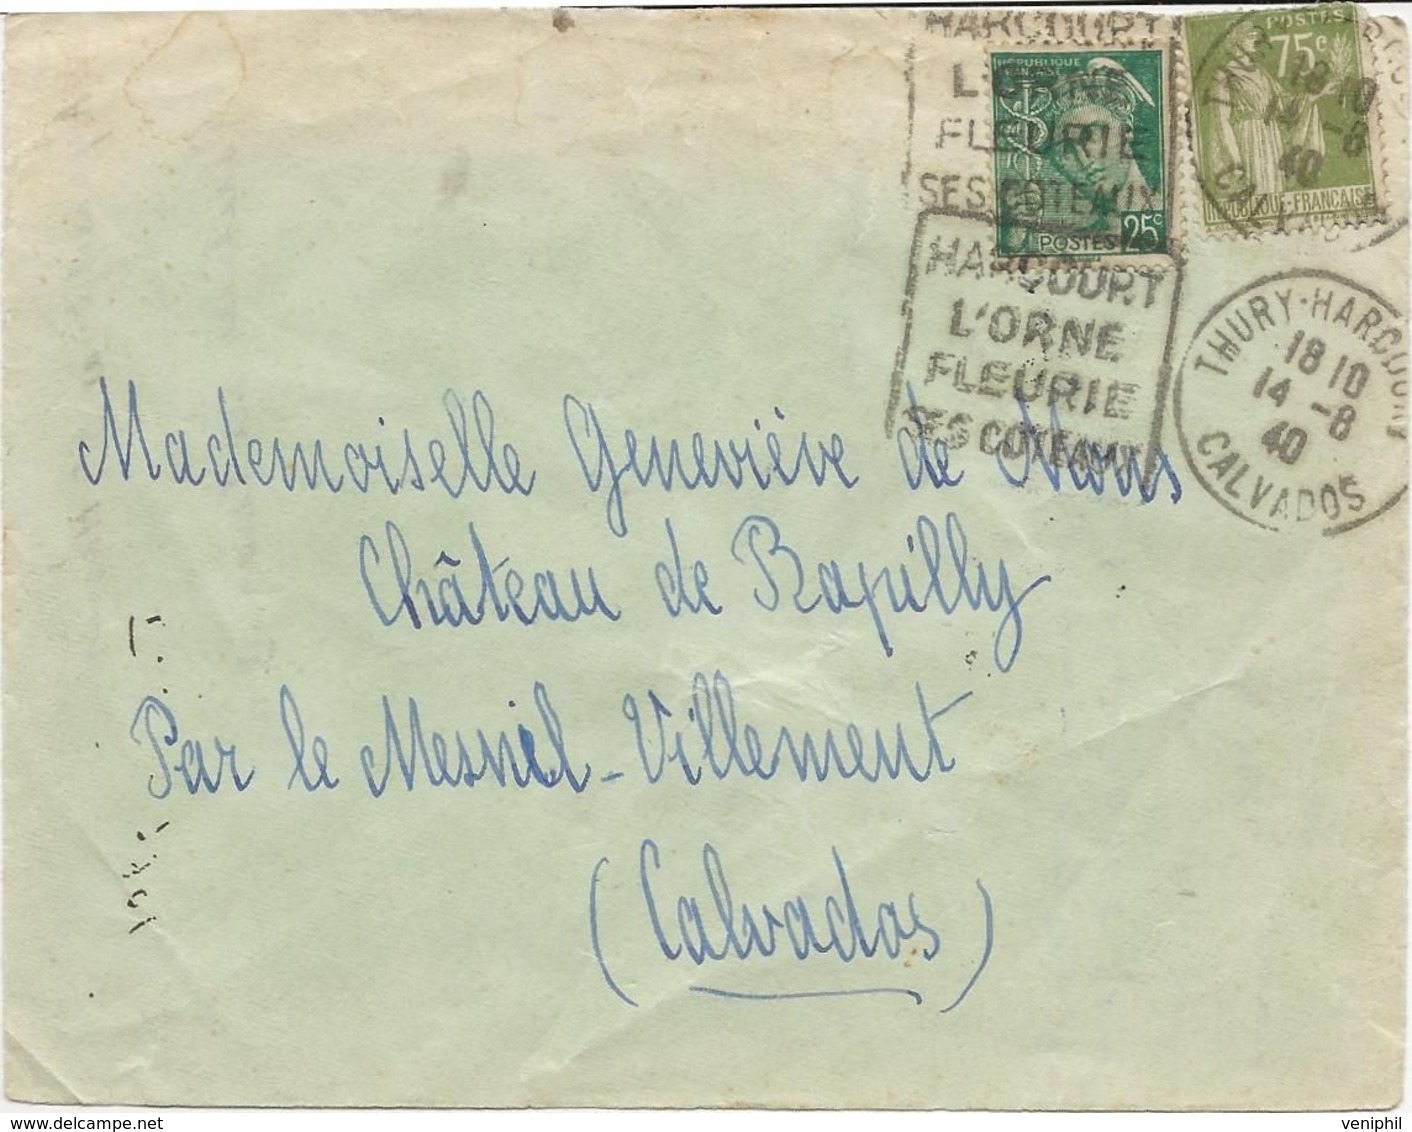 HARCOURT
L'ORNE
FLEURIE
SES COTEAUX
RÉPUBLIQUE
FRANÇAISE
POSTES 25c
POSTES
75c
RÉPUBLIQUE-FRANÇAISE
18 10
14 -8
40
HARCOURT
L'ORNE
FLEURIE
SES COTEAUX
THURY-HARCOURT
18 10
14 -8
40
CALVADOS
Mademoiselle Geneviève de
Château de Rapilly
Par le Mesnil-Villement
(Calvados)
veniphil